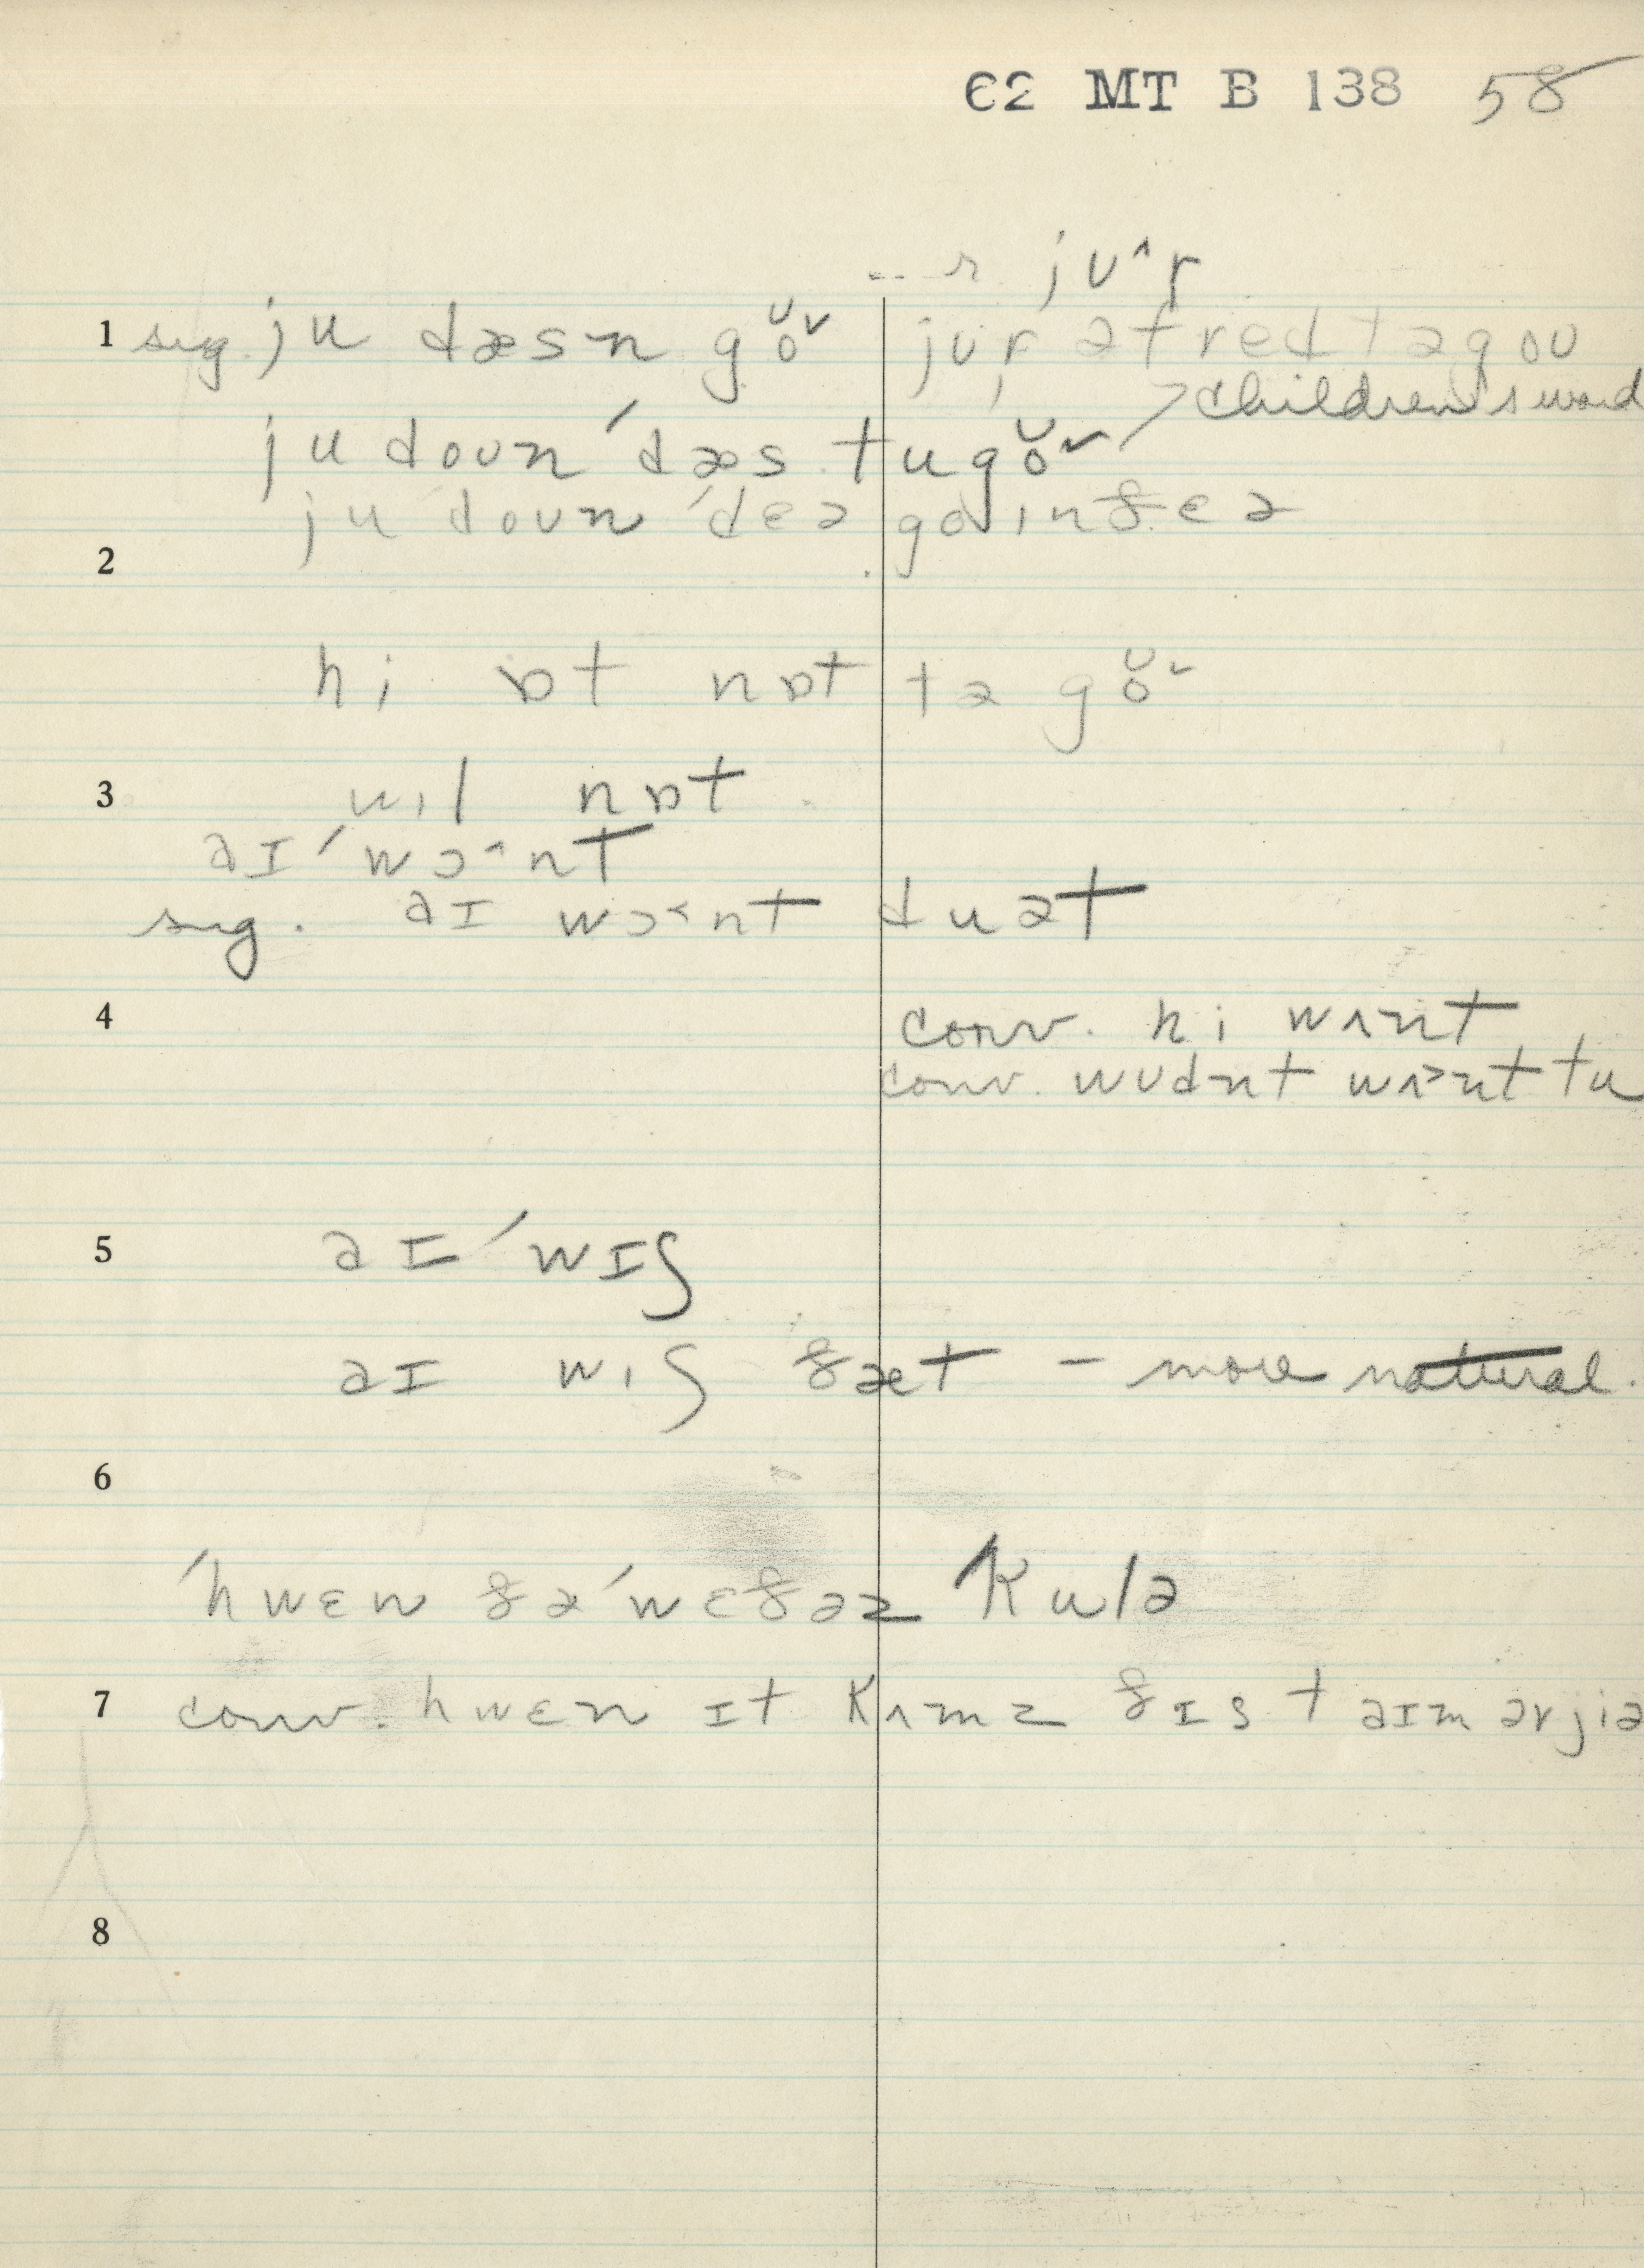 62 MT B 138 58
... r juˆr
1 sug. ju dæsn goᴜ˅ jur əfred təgoʊ
children's word
ju doʊn ˈdæs tu goᴜ˅
ju doʊn ˈdɛə go ɪn ðɛə
2
hi ɒt nɒt tə goᴜ˅
3 wɪl nɒt
aɪ ˈwɔ^nt
sug. aɪ wɔ˂nt du ət
4 conv. hi wʌnt
conv. wʊdnt wʌ˃nt tu
5 aɪ ˈwɪʃ
aɪ wɪʃ ðæt – more natural.
6
ˈhwɛn ðə ˈwɛðəz kulə
7 conv. hwɛn ɪt kʌmz ðɪs taɪm ərjiə
8